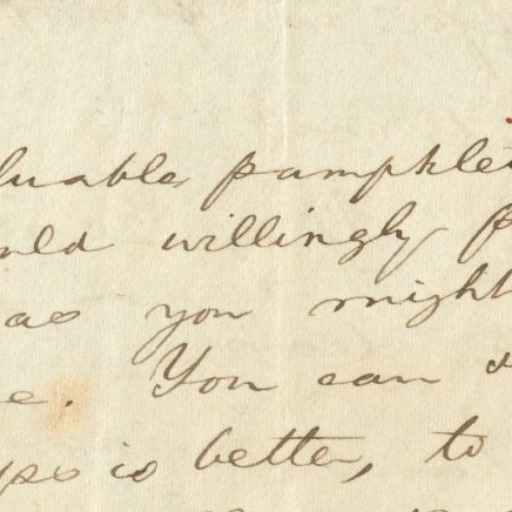 luable pamphlet
uld willingly p
as you might
e. You can
ps is better, to